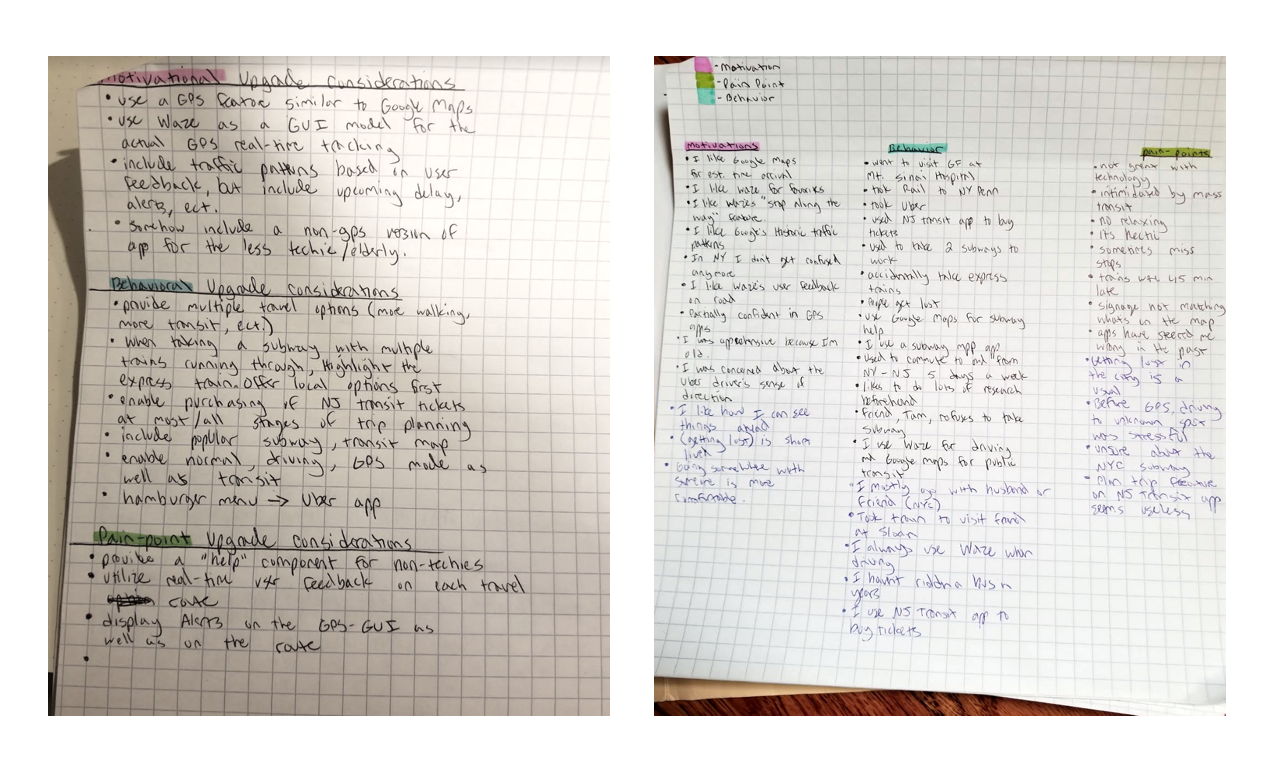 Motivational Upgrade Considerations
• use a GPS feature similar to Google Maps
• use Waze as a GUI model for the
actual GPS real-time tracking
• include traffic patterns based on user
feedback, but include upcoming delay,
alerts, ect.
• somehow include a non-gps version of
app for the less techie/elderly.
Behavioral Upgrade Considerations
• provide multiple travel options (more walking,
more transit, ect.)
• when taking a subway with multiple
trains running through, highlight the
express train. Offer local options first
• enable purchasing of NJ transit tickets
at most/all stages of trip planning
• include popular subway, transit map
• enable normal, driving, GPS mode as
well as transit
• hamburger menu → Uber app
Pain-point Upgrade Considerations
• provide a "help" component for non-techies
• utilize real-time user feedback on each travel
route
• display Alerts on the GPS-GUI as
well as on the route
•
- Motivation
- Pain Point
- Behavior
Motivations
• I like Google Maps
for est. time arrival
• I like waze for favorites
• I like wazes "stop along the
way" feature
• I like Google's historic traffic
patterns
• In NY I dont get confused
anymore
• I like waze's user feedback
on road
• Partially confident in GPS
apps
• I was apprehensive because I'm
old.
• I was concerned about the
Uber driver's sense of
direction
• I like how I can see
things ahead
• (getting lost) is short
lived
• being somewhere with
someone is more
comfortable.
Behavior
• went to visit GF at
Mt. Sinai Hospital
• took Rail to NY Penn
• took Uber
• used NJ transit app to buy
tickets
• used to take 2 subways to
work
• accidentally take express
trains
• People get lost
• use Google Maps for subway
help
• I use a subway map app
• Used to commute to and from
NY - NJ 5 days a week
• likes to do lots of research
beforehand
• friend, Tam, refuses to take
subway
• I use Waze for driving
and Google maps for public
transit
• I mostly go with husband or
friend (NYC)
• Took train to visit friend
at Sloan
• I always use Waze when
driving
• I havnt ridden a bus in
years
• I use NJ Transit app to
buy tickets
Pain-points
• not great with
technology
• intimidated by mass
transit
• no relaxing
• its hectic
• sometimes miss
stops
• trains were 45 min
late
• signage not matching
whats on the map
• apps have steered me
wrong in the past
• Getting lost in
the city is a
usual
• Before GPS, driving
to unknown spot
was stressful
• unsure about the
NYC subway
• Plan trip feature
on NJ Transit app
seems useless